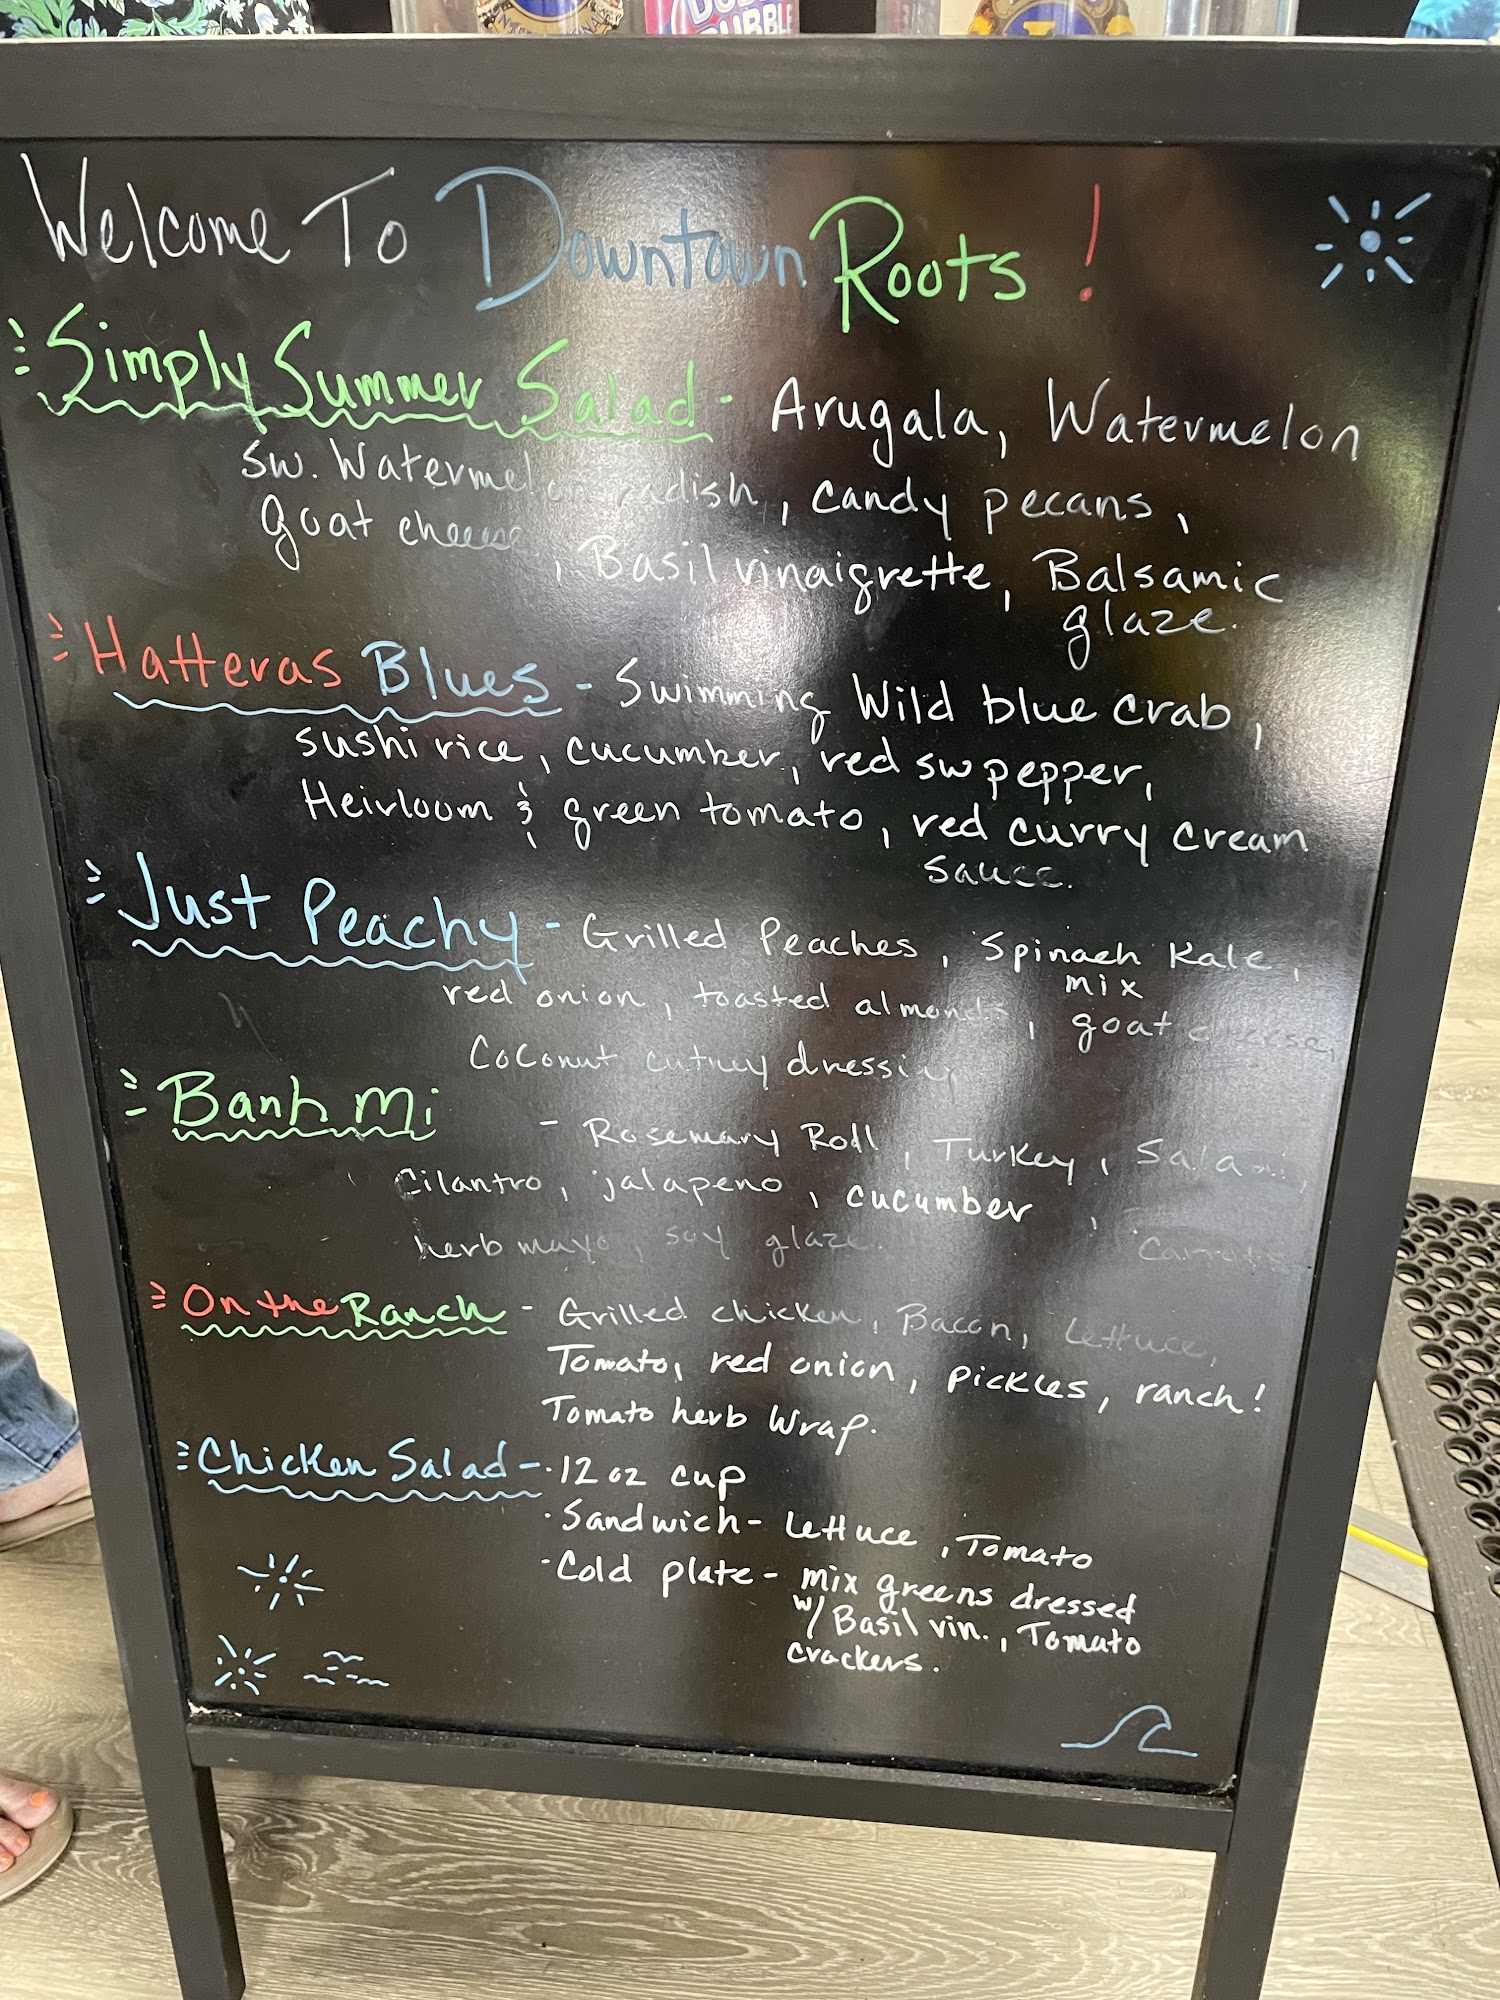 DUBBLE BUBBLE
Welcome To Downtown Roots!
Simply Summer Salad - Arugala, Watermelon
sw. Watermelon radish, candy pecans,
goat cheese, Basil vinaigrette, Balsamic
glaze.
Hatteras Blues - Swimming Wild blue crab,
sushi rice, cucumber, red sw pepper,
Heirloom & green tomato, red curry cream
sauce.
Just Peachy - Grilled Peaches, Spinach Kale,
mix
red onion, toasted almonds, goat cheese,
Coconut cutney dressing
Banh Mi - Rosemary Roll, Turkey,
Cilantro, jalapeno, cucumber,
herb mayo, soy glaze Carrots
On the Ranch - Grilled chicken, Bacon, Lettuce,
Tomato, red onion, pickles, ranch!
Tomato herb Wrap.
Chicken Salad - · 12 oz cup
· Sandwich - Lettuce, Tomato
· Cold plate - mix greens dressed
w/ Basil vin., Tomato
crackers.